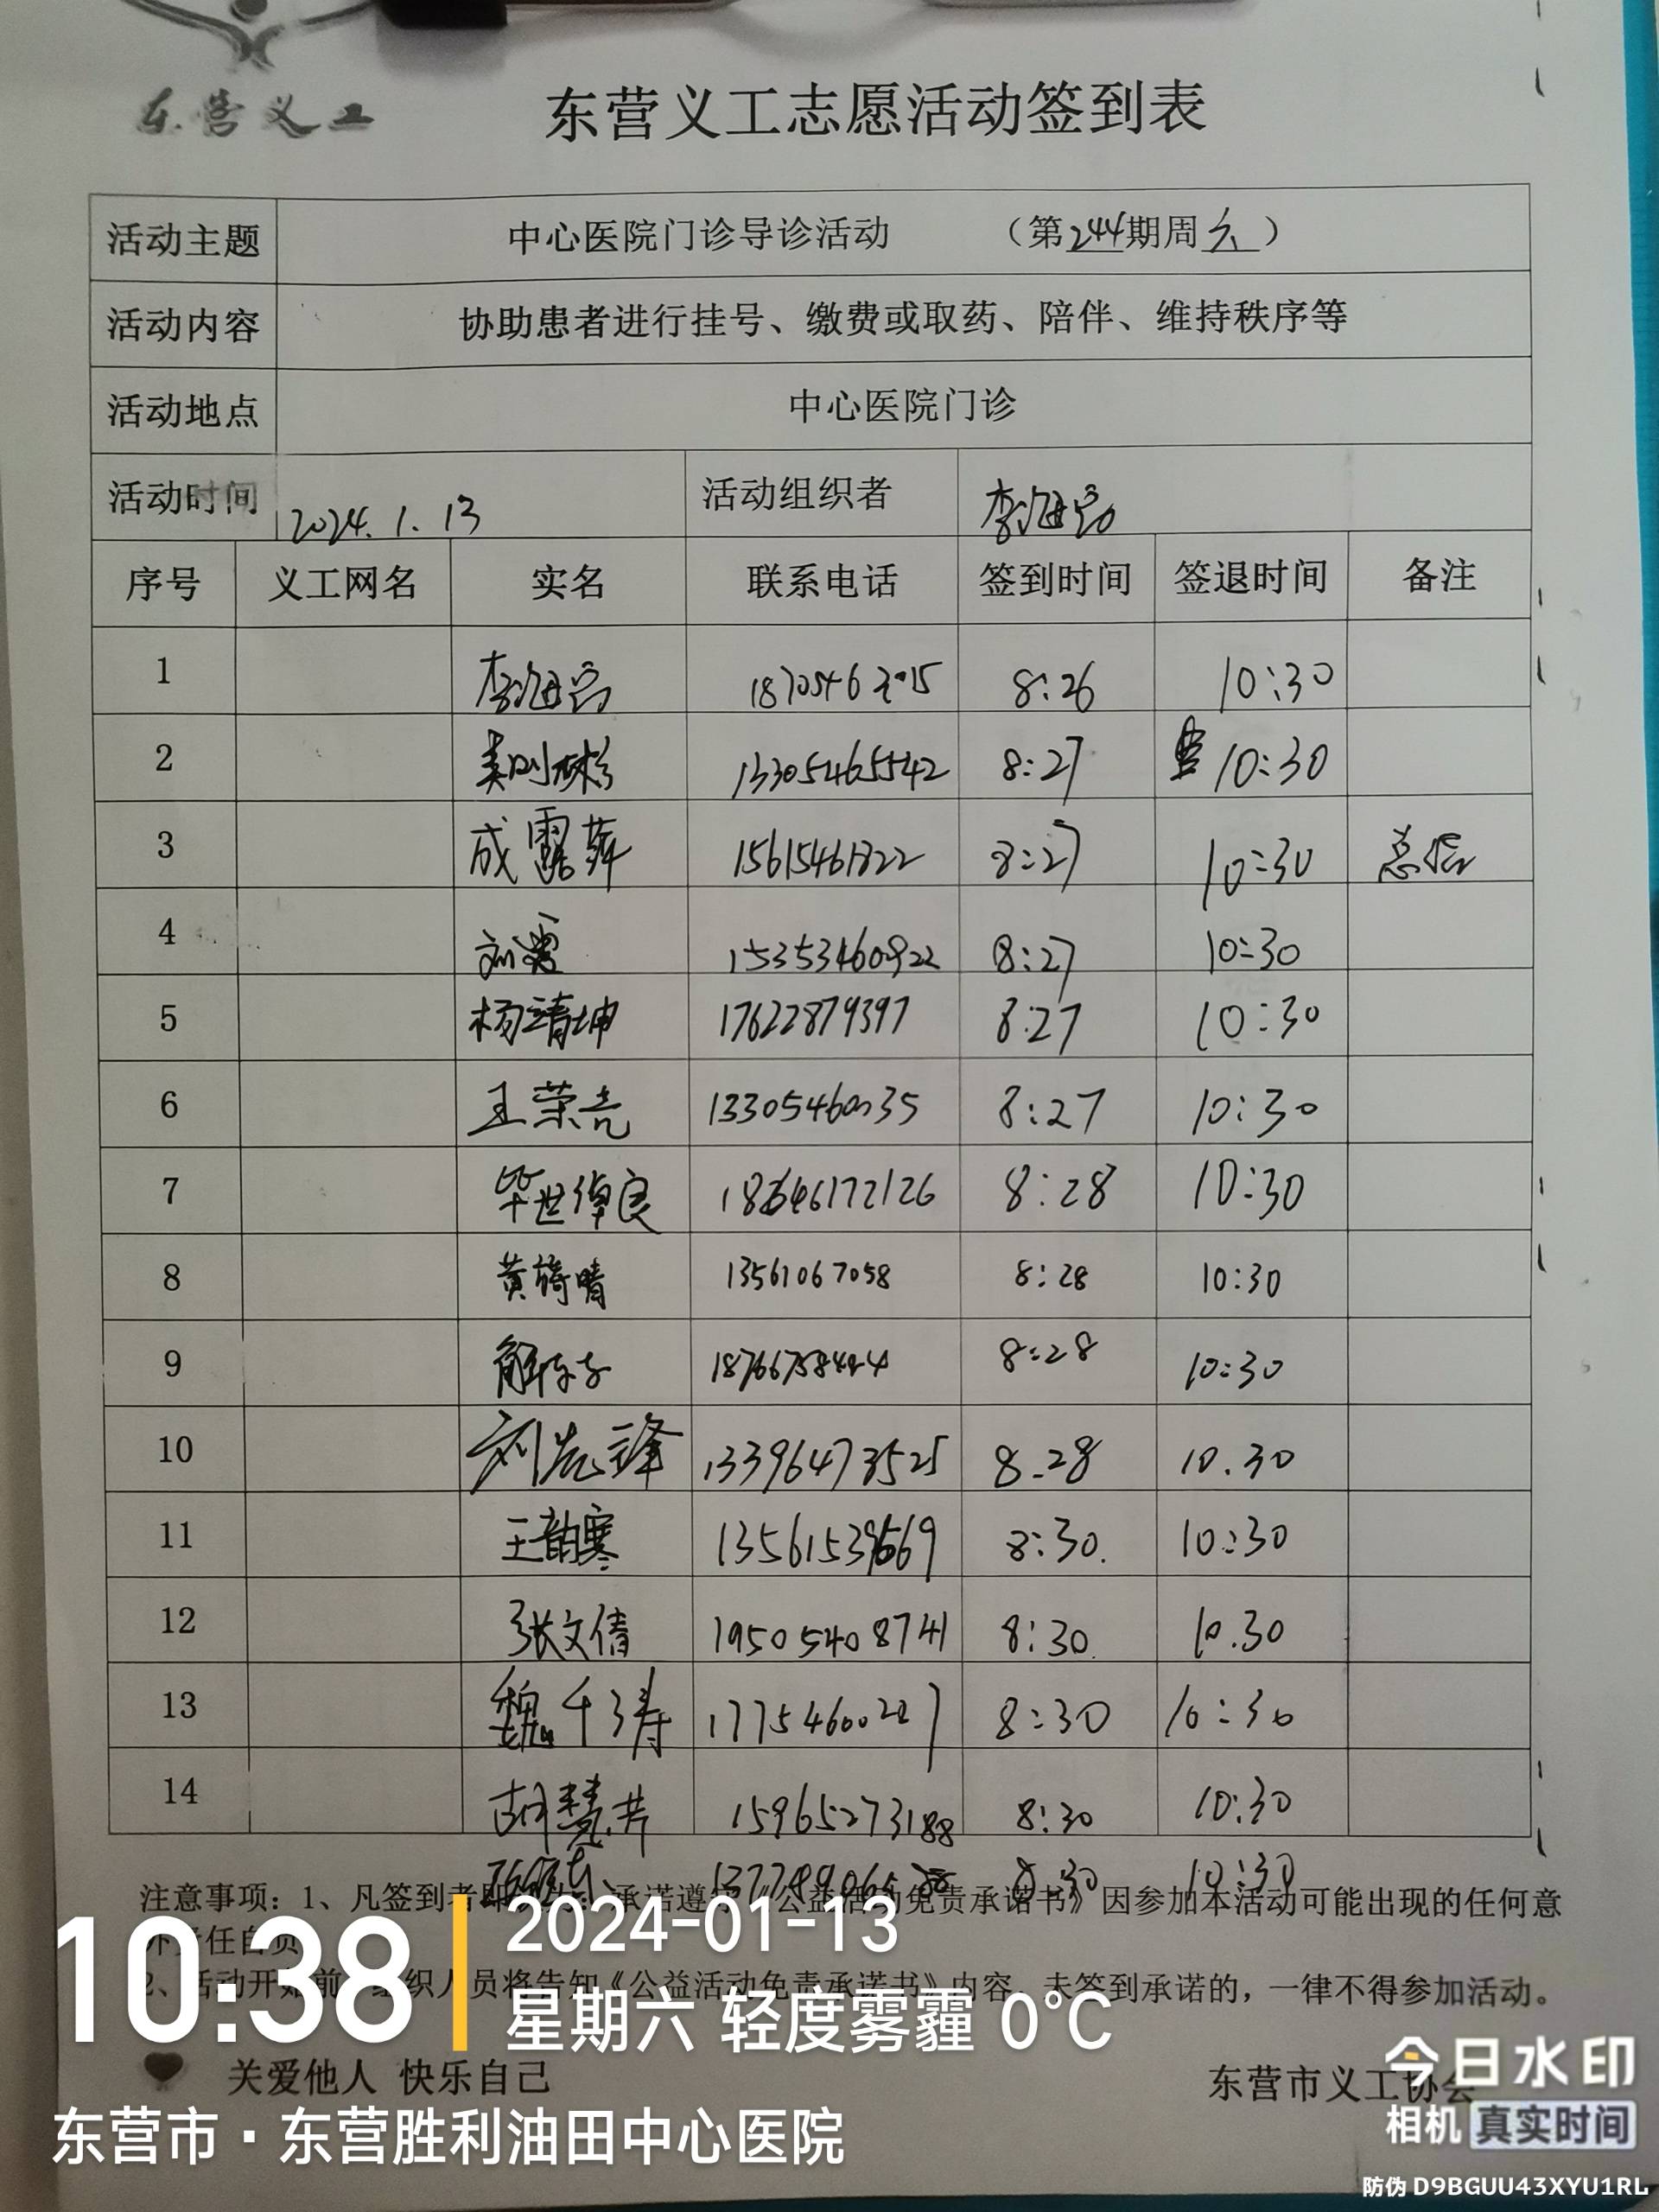 东营义工
东营义工志愿活动签到表
活动主题 中心医院门诊导诊活动 （第244期周六）
活动内容 协助患者进行挂号、缴费或取药、陪伴、维持秩序等
活动地点 中心医院门诊
活动时间 2024.1.13 活动组织者 李海宫
序号 义工网名 实名 联系电话 签到时间 签退时间 备注
1 李海宫 8:26 10:30
2 13305465542 8:27 10:30
3 成露萍 15615461822 8:27 10:30
4 刘霞 15353460922 8:27 10:30
5 杨靖坤 17622879397 8:27 10:30
6 王荣亮 13305460035 8:27 10:30
7 毕世倬良 18646172126 8:28 10:30
8 黄旖晴 13561067058 8:28 10:30
9 8:28 10:30
10 刘先锋 13396473525 8:28 10.30
11 王韵寒 13561539669 8:30. 10:30
12 张文倩 19505408741 8:30. 10.30
13 魏千涛 17754600227 8:30 10:30
14 胡慧芹 15965273188 8:30 10:30
8:30 10:30
注意事项：1、凡签到者即 承诺遵守《公益活动免责承诺书》因参加本活动可能出现的任何意
外责任自负
2、活动开始前 组织人员将告知《公益活动免责承诺书》内容，未签到承诺的，一律不得参加活动。
10:38
2024-01-13
星期六 轻度雾霾 0°C
关爱他人 快乐自己
东营市义工协会
东营市·东营胜利油田中心医院
今日水印
相机 真实时间
防伪 D9BGUU43XYU1RL